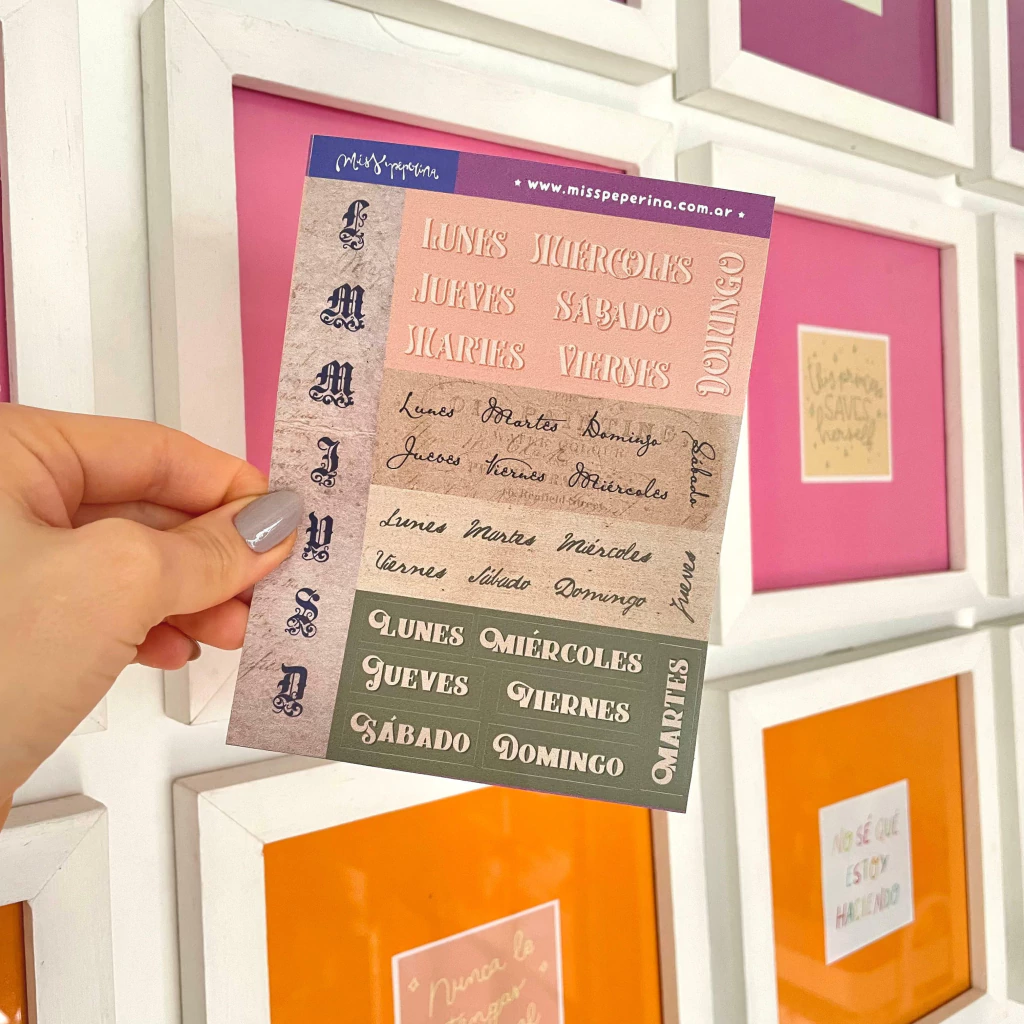 MissPeperina
★ www.misspeperina.com.ar ★
L
M
M
J
V
S
D
LUNES MIÉRCOLES
JUEVES SÁBADO
MARTES VIERNES
DOMINGO
Lunes Martes Domingo
Jueves Viernes Miércoles
Sábado
Lunes Martes Miércoles
Viernes Sábado Domingo
Jueves
LUNES MIÉRCOLES
JUEVES VIERNES
SÁBADO DOMINGO
MARTES
this princess
SAVES
herself
NO SÉ QUÉ
ESTOY
HACIENDO
Nunca le
tengas